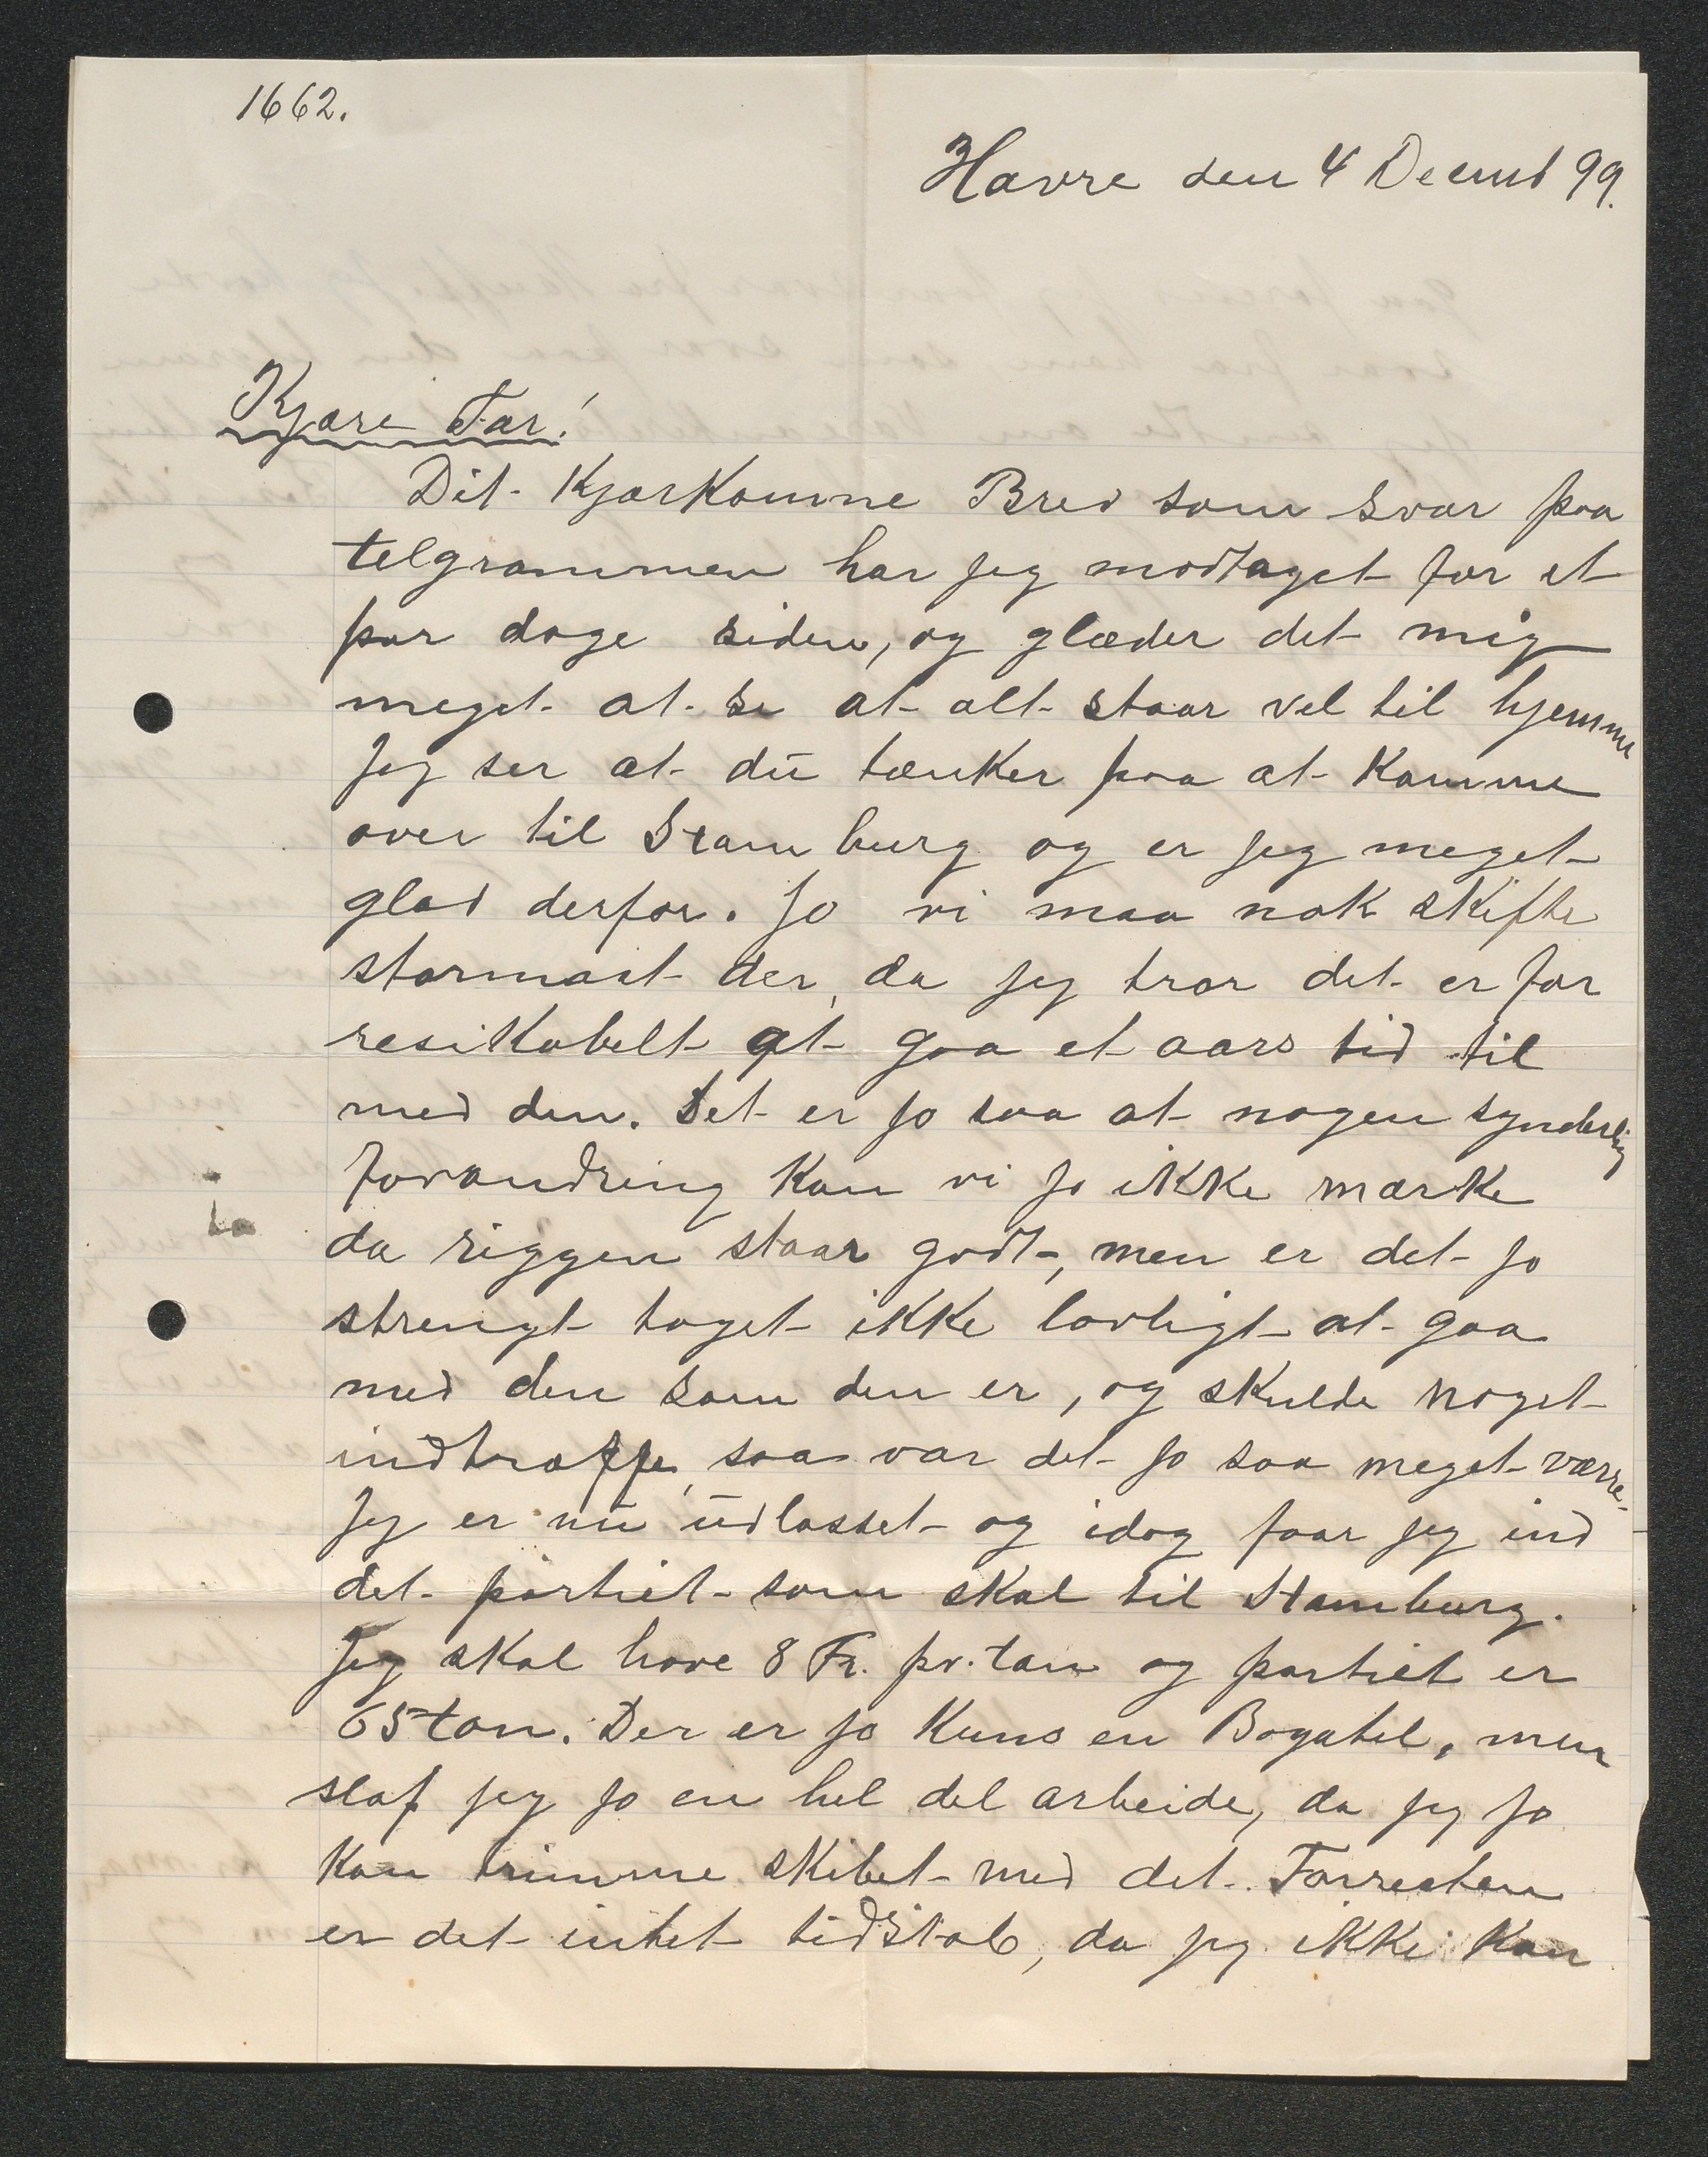 1662.
Havre den 4 Decemb 99.
Kjære Far!
Dit Kjærkomne Brev som svar paa
telgrammen har jeg modtaget for et
par dage siden, og glæder det mig
meget at se at alt staar vel til hjemme
Jeg ser at du tænker paa at komme
over til Hamburg og er jeg meget
glad derfor. Jo vi maa nok skifte
stormast der, da jeg tror det er for
resikabelt at gaa et aars tid til
med den. Det er jo saa at nogen synderlig
forandring kan vi jo ikke mærke
da riggen staar godt, men er det jo
strengt taget ikke lovligt at gaa
med den som den er, og skulde noget
indtræffe, saa var det jo saa meget værre.
Jeg er nu udlosset og idag faar jeg ind
det partiet som skal til Hamburg.
Jeg skal have 8 Fr. pr. ton og partiet er
65 ton. Der er jo kuns en Bagatel, men
slaf jeg jo en hel del arbeide, da jeg jo
kan trimme skibet med det. Forresten
er det intet tidstab, da jeg ikke kan